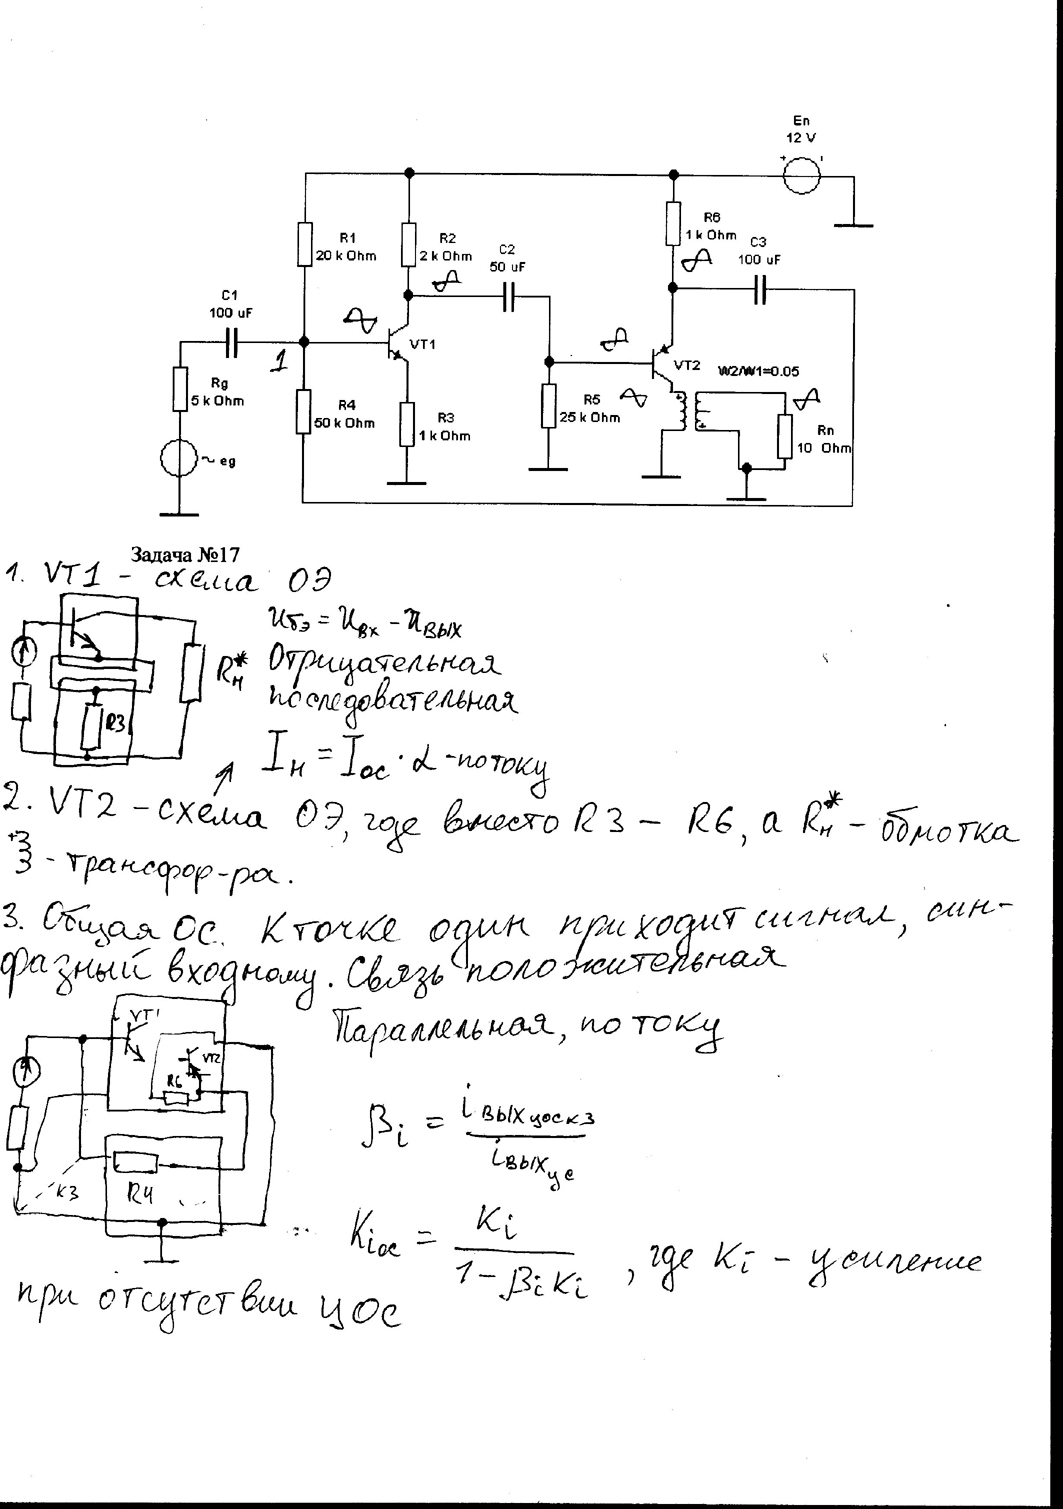 En
12 V
R1
20 k Ohm
R2
2 k Ohm
C2
50 uF
R6
1 k Ohm
C3
100 uF
C1
100 uF
1
VT1
Rg
5 k Ohm
~ eg
R4
50 k Ohm
R3
1 k Ohm
R5
25 k Ohm
VT2
W2/W1=0.05
Rn
10 Ohm
Задача №17
1. VT1 - схема ОЭ
Uбэ = Uвх - Uвых
Отрицательная
последовательная
Rн*
R3
Iн = Iос · α - по току
2. VT2 - схема ОЭ, где вместо R3 - R6, а Rн* - обмотка
- трансфор-ра.
3. Общая ОС. К точке один приходит сигнал, син-
фазный входному. Связь положительная
Параллельная, по току
VT1
VT2
R6
R4
КЗ
βi = iвых цос кз / iвых ус
Kiос = Ki / 1 - βi Ki , где Ki - усиление
при отсутствии цОС